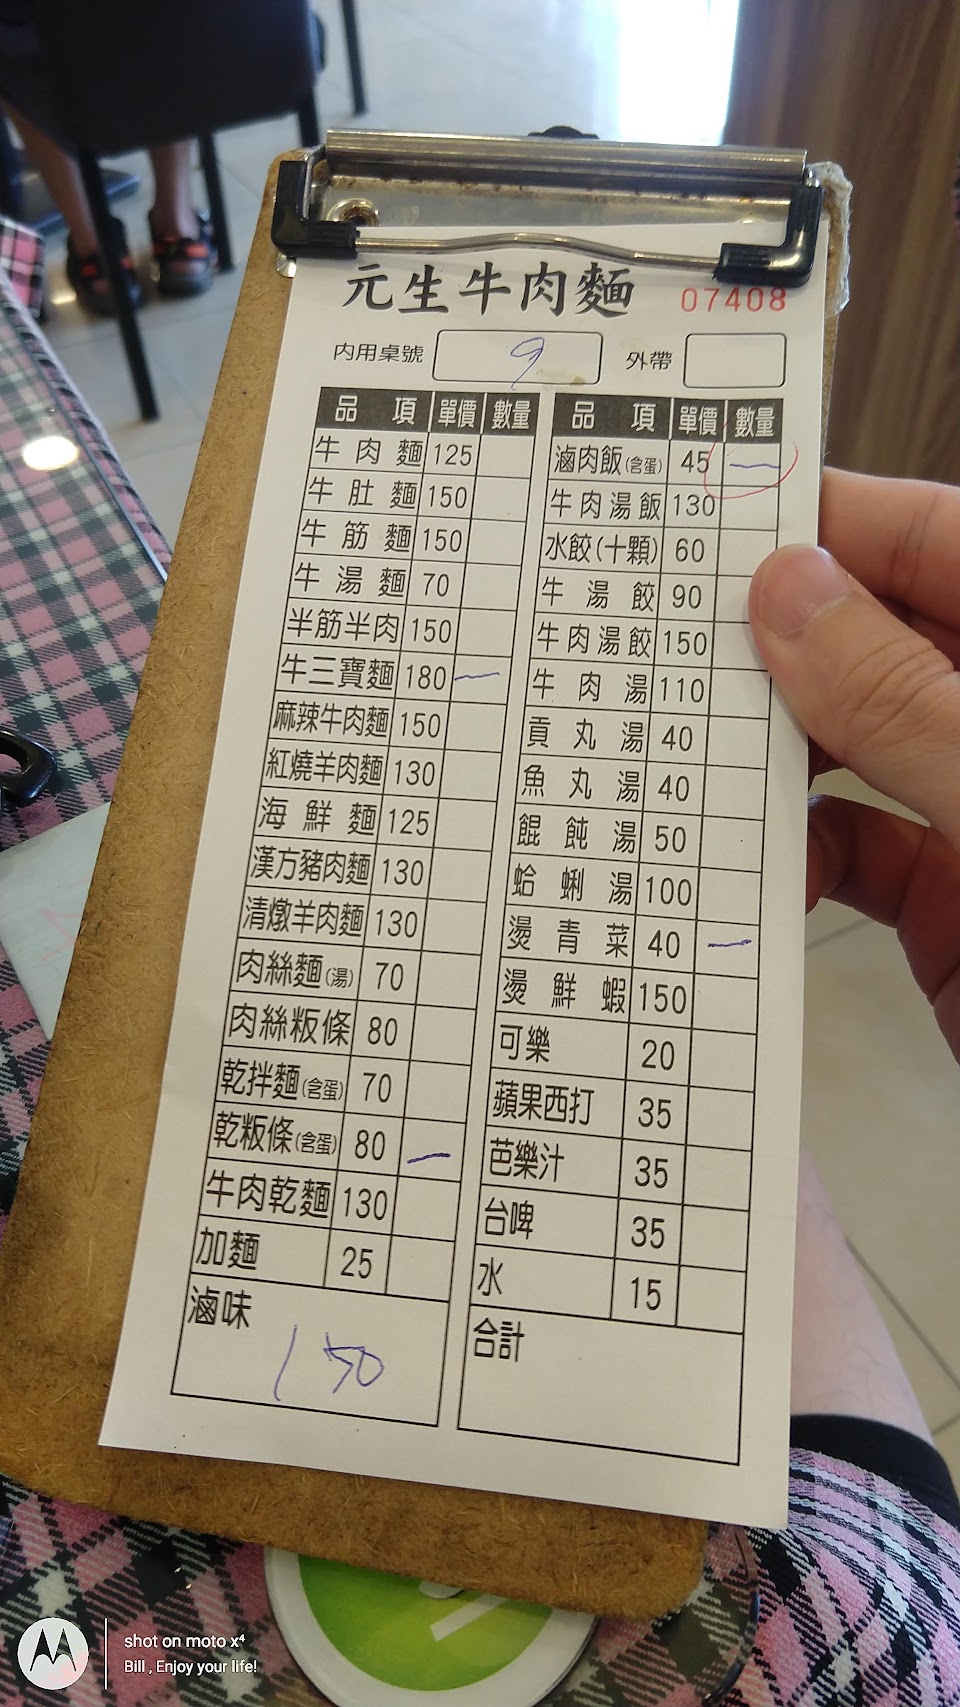 元生牛肉麵
07408
內用桌號 9 外帶
品項 單價 數量
牛肉麵 125
牛肚麵 150
牛筋麵 150
牛湯麵 70
半筋半肉 150
牛三寶麵 180 一
麻辣牛肉麵 150
紅燒羊肉麵 130
海鮮麵 125
漢方豬肉麵 130
清燉羊肉麵 130
肉絲麵(湯) 70
肉絲粄條 80
乾拌麵(含蛋) 70
乾粄條(含蛋) 80 一
牛肉乾麵 130
加麵 25
滷味
150
品項 單價 數量
滷肉飯(含蛋) 45 一
牛肉湯飯 130
水餃(十顆) 60
牛湯餃 90
牛肉湯餃 150
牛肉湯 110
貢丸湯 40
魚丸湯 40
餛飩湯 50
蛤蜊湯 100
燙青菜 40 一
燙鮮蝦 150
可樂 20
蘋果西打 35
芭樂汁 35
台啤 35
水 15
合計
shot on moto x⁴
Bill , Enjoy your life!